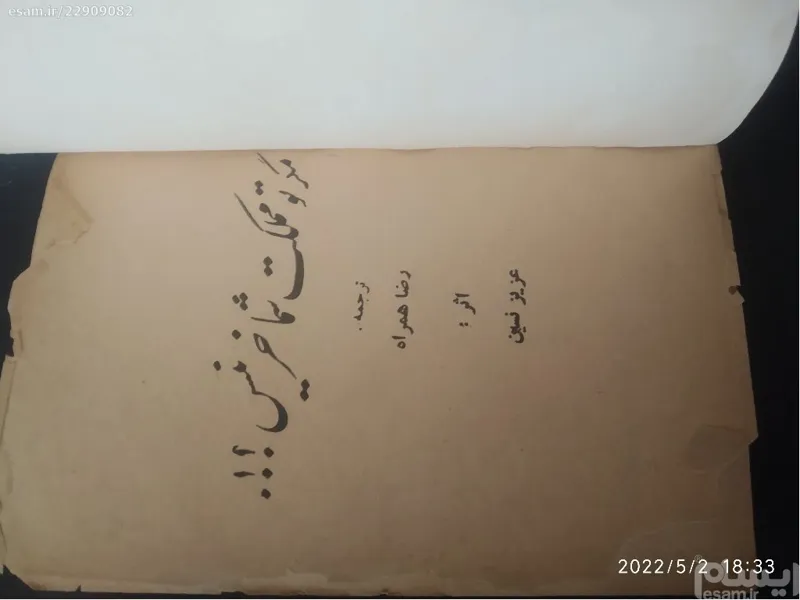 esam.ir/22909082
مگر تو مملکت شما خر نیس ؟!..
ترجمه .
رضا همراه
اثر :
عزیز نسین
2022/5/2 18:33
ایسام
esam.ir